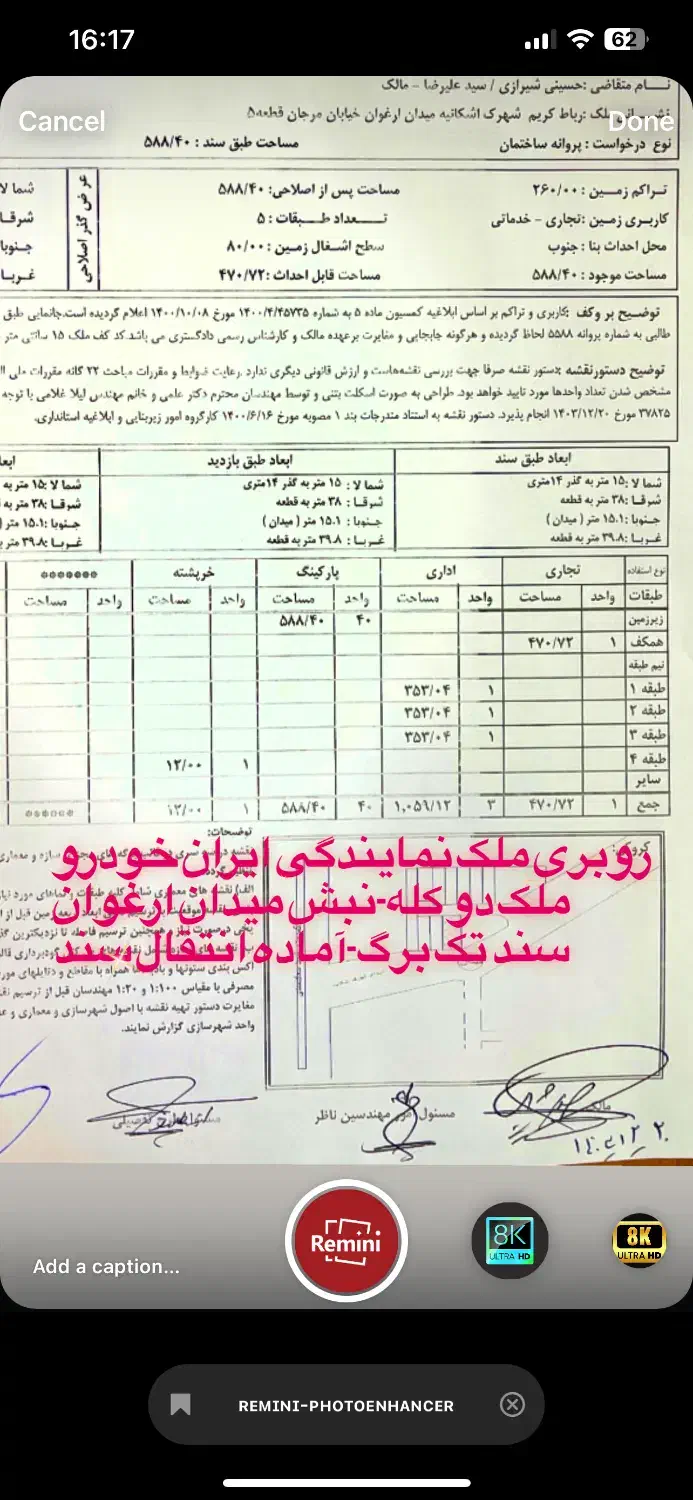 16:17
62
Cancel
Done
نـــام متقاضی :حسینی شیرازی / سید علیرضا - مالک
ملک :رباط کریم شهرک اشکانیه میدان ارغوان خیابان مرجان قطعه۵
نوع درخواست : پروانه ساختمان
مساحت طبق سند : ۵۸۸/۴۰
تـراکم زمـیـن : ۲۶۰/۰۰
مساحت پس از اصلاحی: ۵۸۸/۴۰
کاربـری زمین :تجاری - خدماتی
تـــعداد طـــبقات : ۵
محل احداث بنا : جنوب
سطح اشـغال زمـین : ۸۰/۰۰
مساحت موجود : ۵۸۸/۴۰
مساحت قابل احداث :۴۷۰/۷۲
عرض گذر اصلاحی
شما لا
شرقـا
جـنوبا
غـربـا
توضیح بر و کف :کاربری و تراکم بر اساس ابلاغیه کمسیون ماده ۵ به شماره ۱۴۰۰/۴/۴۵۷۳۵ مورخ ۱۴۰۰/۱۰/۰۸ اعلام گردیده است.جانمایی طبق
طالبی به شماره پروانه ۵۵۸۸ لحاظ گردیده و هرگونه جابجایی و مغایرت برعهده مالک و کارشناس رسمی دادگستری می باشد.کد کف ملک ۱۵ سانتی متر
توضیح دستورنقشه :دستور نقشه صرفا جهت بررسی نقشه‌هاست و ارزش قانونی دیگری ندارد .رعایت ضوابط و مقررات مباحث ۲۲ گانه مقررات ملی ال
مشخص شدن تعداد واحدها مورد تایید خواهد بود. طراحی به صورت اسکلت بتنی و توسط مهندسان محترم دکتر علمی و خانم مهندس لیلا غلامی با توجه
۳۷۸۲۵ مورخ ۱۴۰۳/۱۲/۲۰ انجام پذیرد. دستور نقشه به استناد مندرجات بند ۱ مصوبه مورخ ۱۴۰۰/۶/۱۶ کارگروه امور زیربنایی و ابلاغیه استانداری.
ابعاد طبق سند
ابعاد طبق بازدید
ابعا
شما لا :۱۵ متر به گذر ۱۴متری
شما لا : ۱۵ متر به گذر ۱۴متری
شما لا :۱۵ متر به
شـرقـا :۳۸ متر به قطعه
شـرقـا : ۳۸ متر به قطعه
شـرقـا :۳۸ متر به
جـنوبا :۱۵.۱ متر ( میدان )
جـنوبا : ۱۵.۱ متر ( میدان )
جـنوبا :۱۵.۱ متر (
غـربـا :۳۹.۸ متر به قطعه
غـربـا : ۳۹.۸ متر به قطعه
غـربـا :۳۹.۸ متر به
نوع استفاده تجاری اداری پارکینگ خرپشته *******
طبقات واحد مساحت واحد مساحت واحد مساحت واحد مساحت واحد مساحت
زیرزمین ۴۰ ۵۸۸/۴۰
همکف ۱ ۴۷۰/۷۲
نیم طبقه
طبقه ۱ ۱ ۳۵۳/۰۴
طبقه ۲ ۱ ۳۵۳/۰۴
طبقه ۳ ۱ ۳۵۳/۰۴
طبقه ۴ ۱ ۱۲/۰۰
سایر
جمع ۱ ۴۷۰/۷۲ ۳ ۱,۰۵۹/۱۲ ۴۰ ۵۸۸/۴۰ ۱ ۱۲/۰۰ ******
روبری ملک نمایندگی ایران خودرو
ملک دو کله-نبش میدان ارغوان
سند تک برگ-آماده انتقال سند
توضحات:
مصرفی با مقیاس ۱:۱۰۰ و ۱:۲۰ مهندسان قبل از ترسیم
مغایرت دستور تهیه نقشه با اصول شهرسازی و معماری و
واحد شهرسازی گزارش نمایند.
مالک
مسئول مهندسین ناظر
Add a caption...
Remini
8K
ULTRA HD
8K
ULTRA HD
REMINI-PHOTOENHANCER